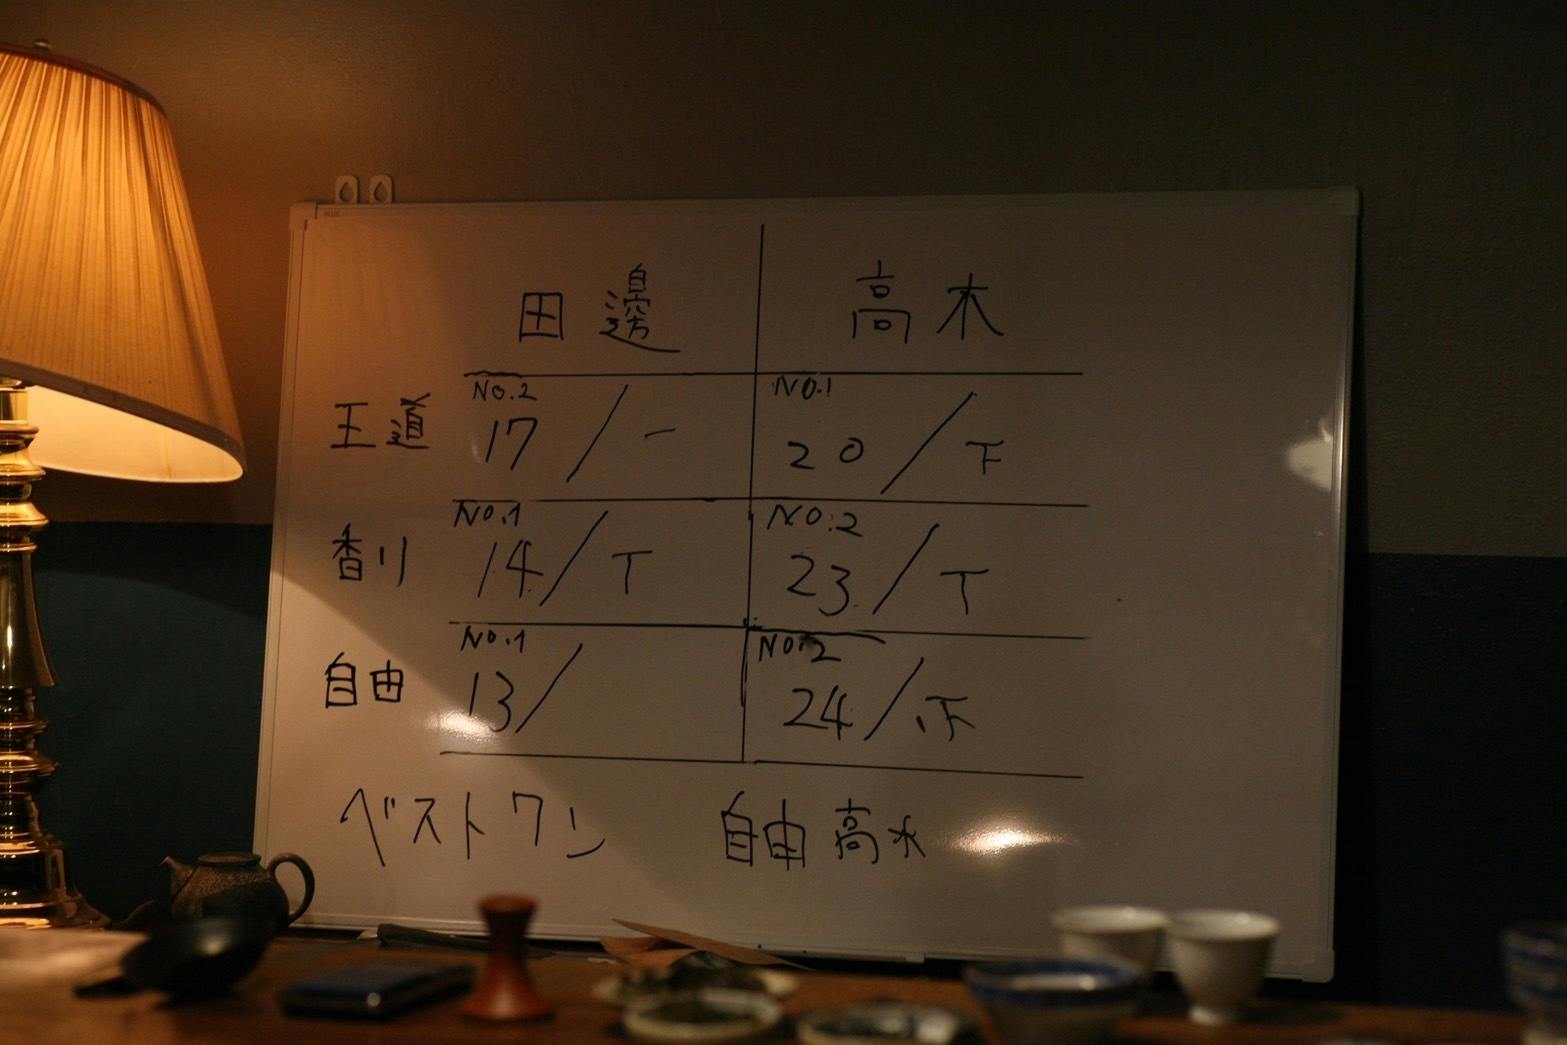 田邊 高木
No.2 No.1
王道 17 / 一 20 / 下
No.1 No.2
香り 14 / T 23 / T
No.1 No.2
自由 13 / 24 / 下
ベストワン 自由 高木